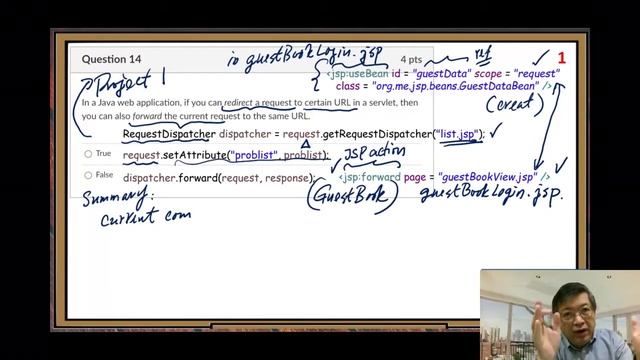 in guestBookLogin.jsp
Question 14
4 pts
ref
1
Project 1
<jsp:useBean id = "guestData" scope = "request"
class = "org.me.jsp.beans.GuestDataBean" />
(creat)
In a Java web application, if you can redirect a request to certain URL in a servlet, then
you can also forward the current request to the same URL.
RequestDispatcher dispatcher = request.getRequestDispatcher("list.jsp");
True
request.setAttribute("problist", problist);
JSP action
False
dispatcher.forward(request, response);
<jsp:forward page = "guestBookView.jsp" />
Summary:
(GuestBook)
guestBookLogin.jsp.
current com